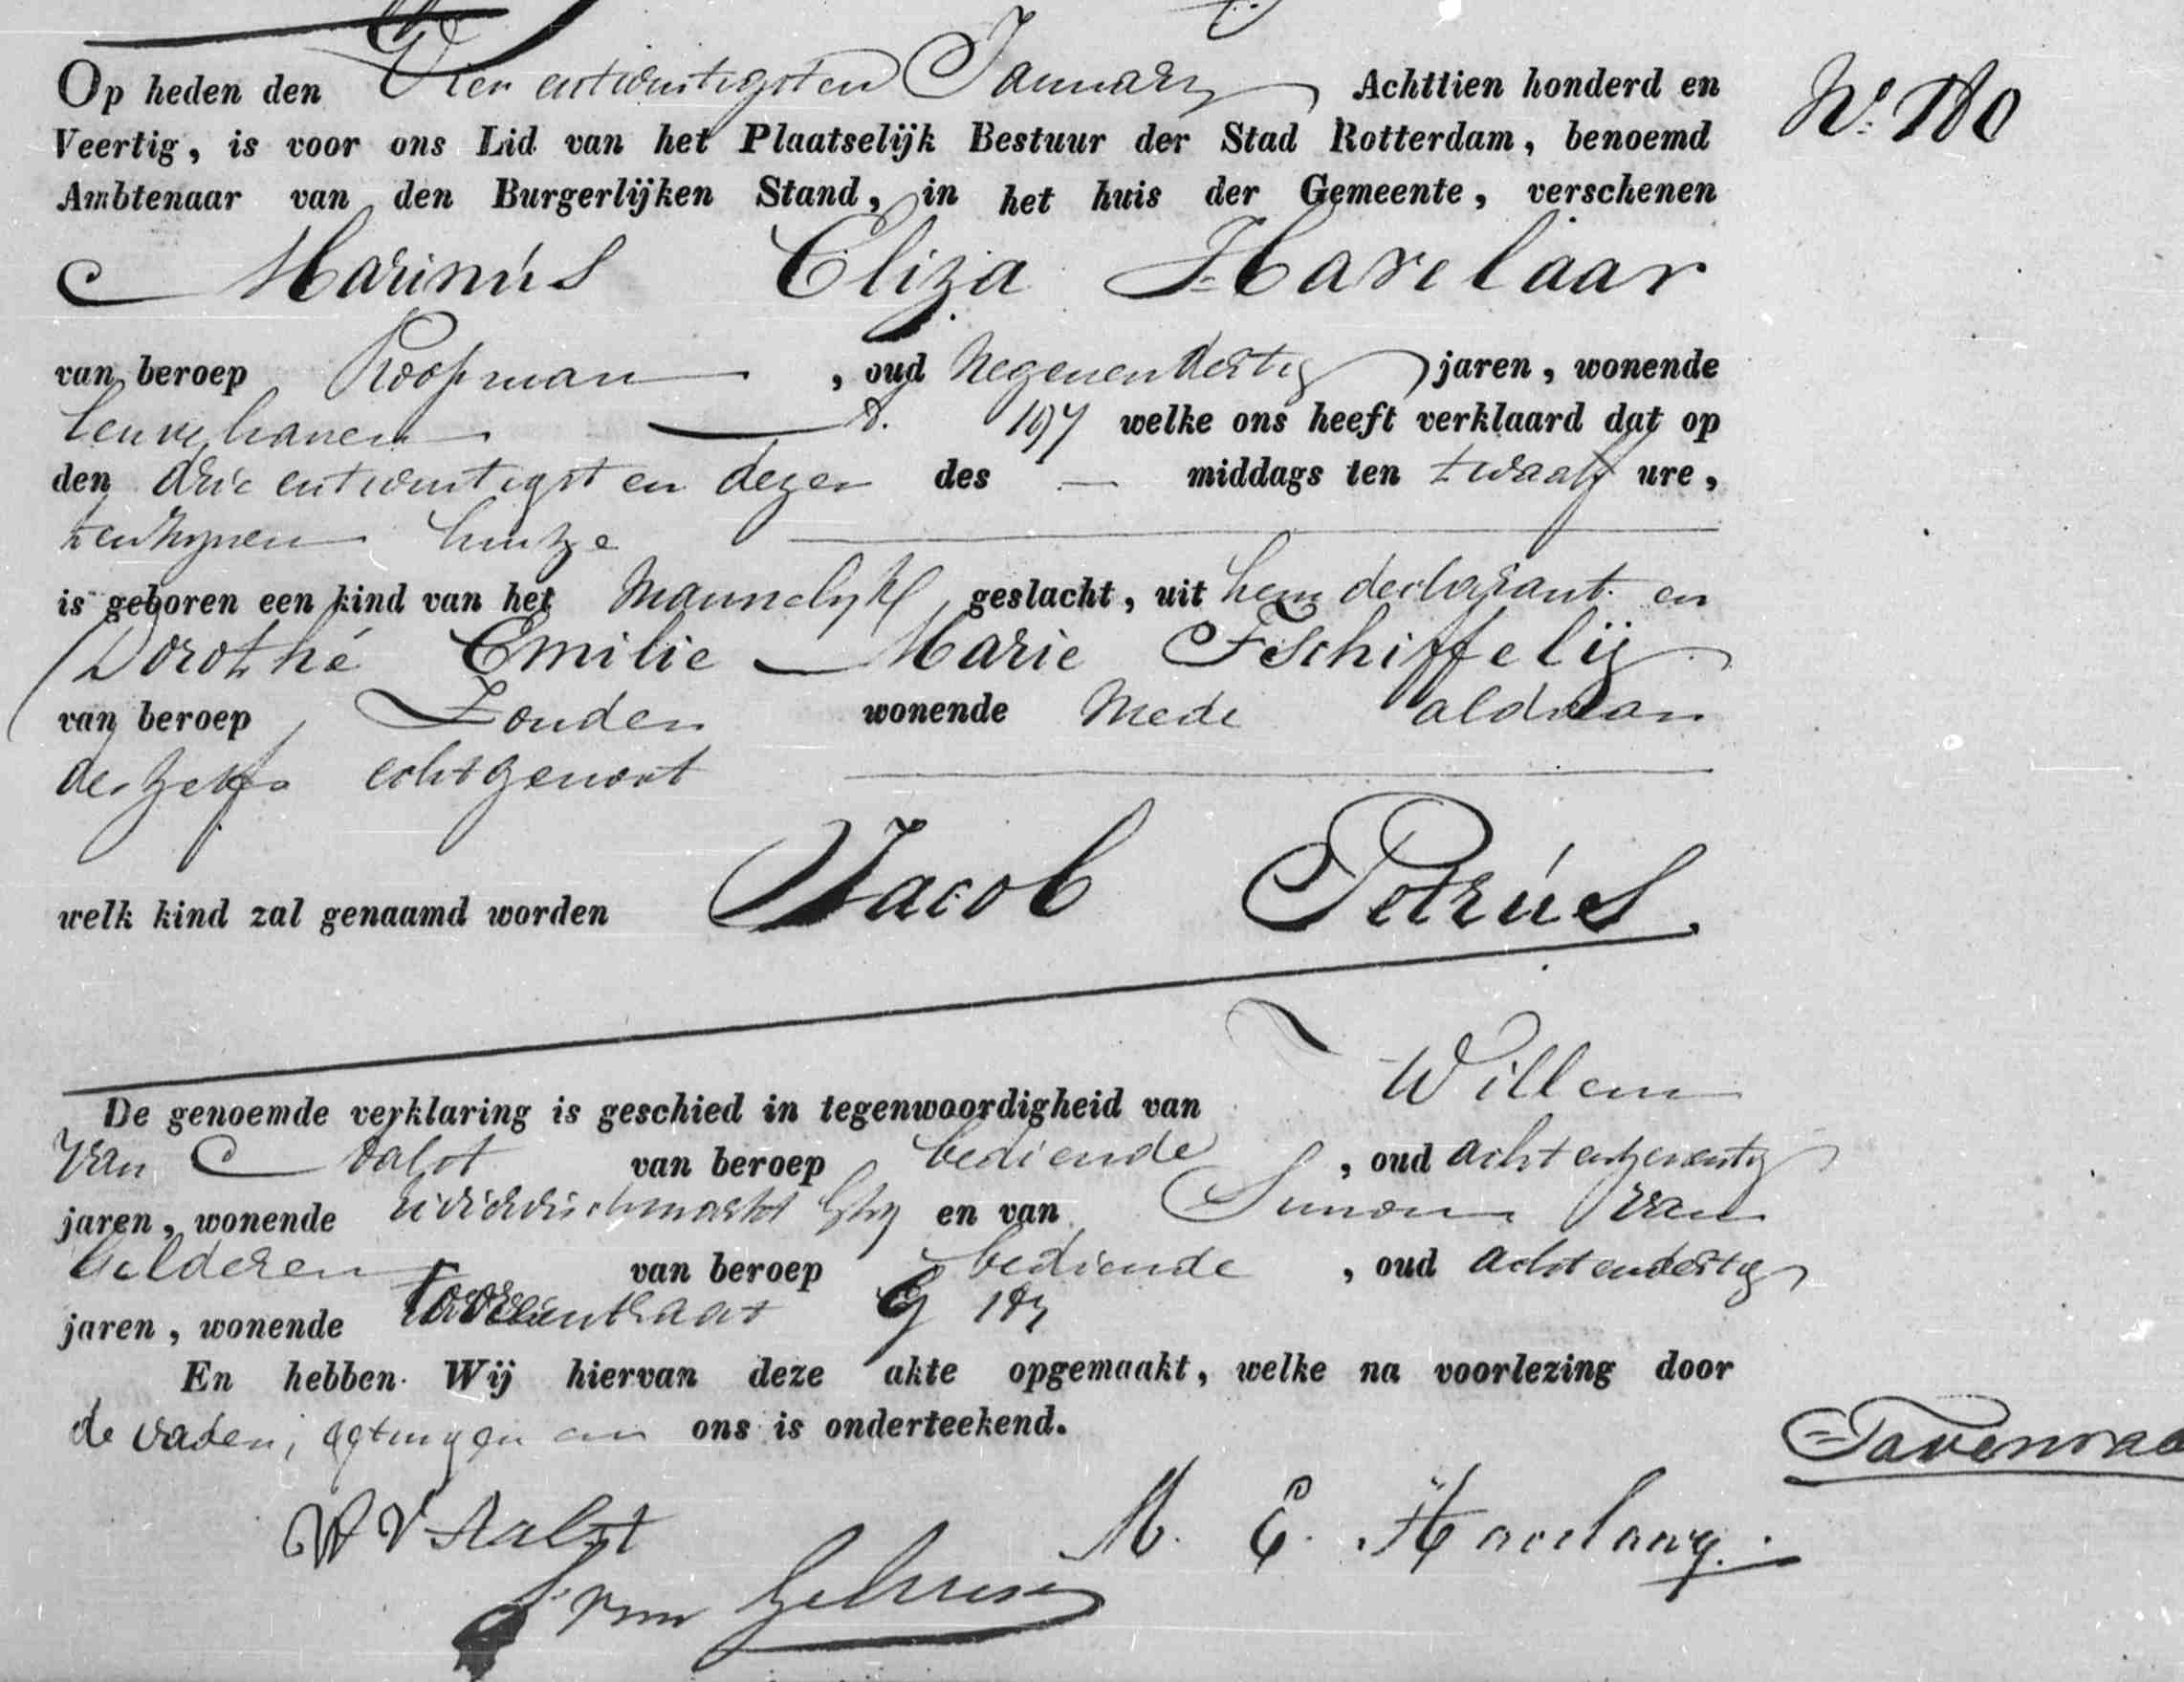 Op heden den Vier entwintigsten January Achttien honderd en
No. 180
Veertig, is voor ons Lid van het Plaatselijk Bestuur der Stad Rotterdam, benoemd
Ambtenaar van den Burgerlijken Stand, in het huis der Gemeente, verschenen
Marinus Eliza Havelaar
van beroep Koopman, oud Negenendertig jaren, wonende
Leuvehaven 197 welke ons heeft verklaard dat op
den drie entwintigsten dezer des — middags ten twaalf ure,
tenhynen huize
is geboren een kind van het Mannelyk geslacht, uit hem declarant en
Dorothé Emilie Marie Tschiffelij
van beroep Zonder wonende Mede aldaar
deszelfs echtgenoot
welk kind zal genaamd worden Jacob Petrus.
De genoemde verklaring is geschied in tegenwoordigheid van Willem
van Aalst van beroep bediende, oud acht enzeventig
jaren, wonende en van Simon van
Gelderen van beroep bediende, oud achtendertig
jaren, wonende
En hebben Wij hiervan deze akte opgemaakt, welke na voorlezing door
de vader, getuygen en ons is onderteekend.
W V Aalst
M. E. Havelaar.